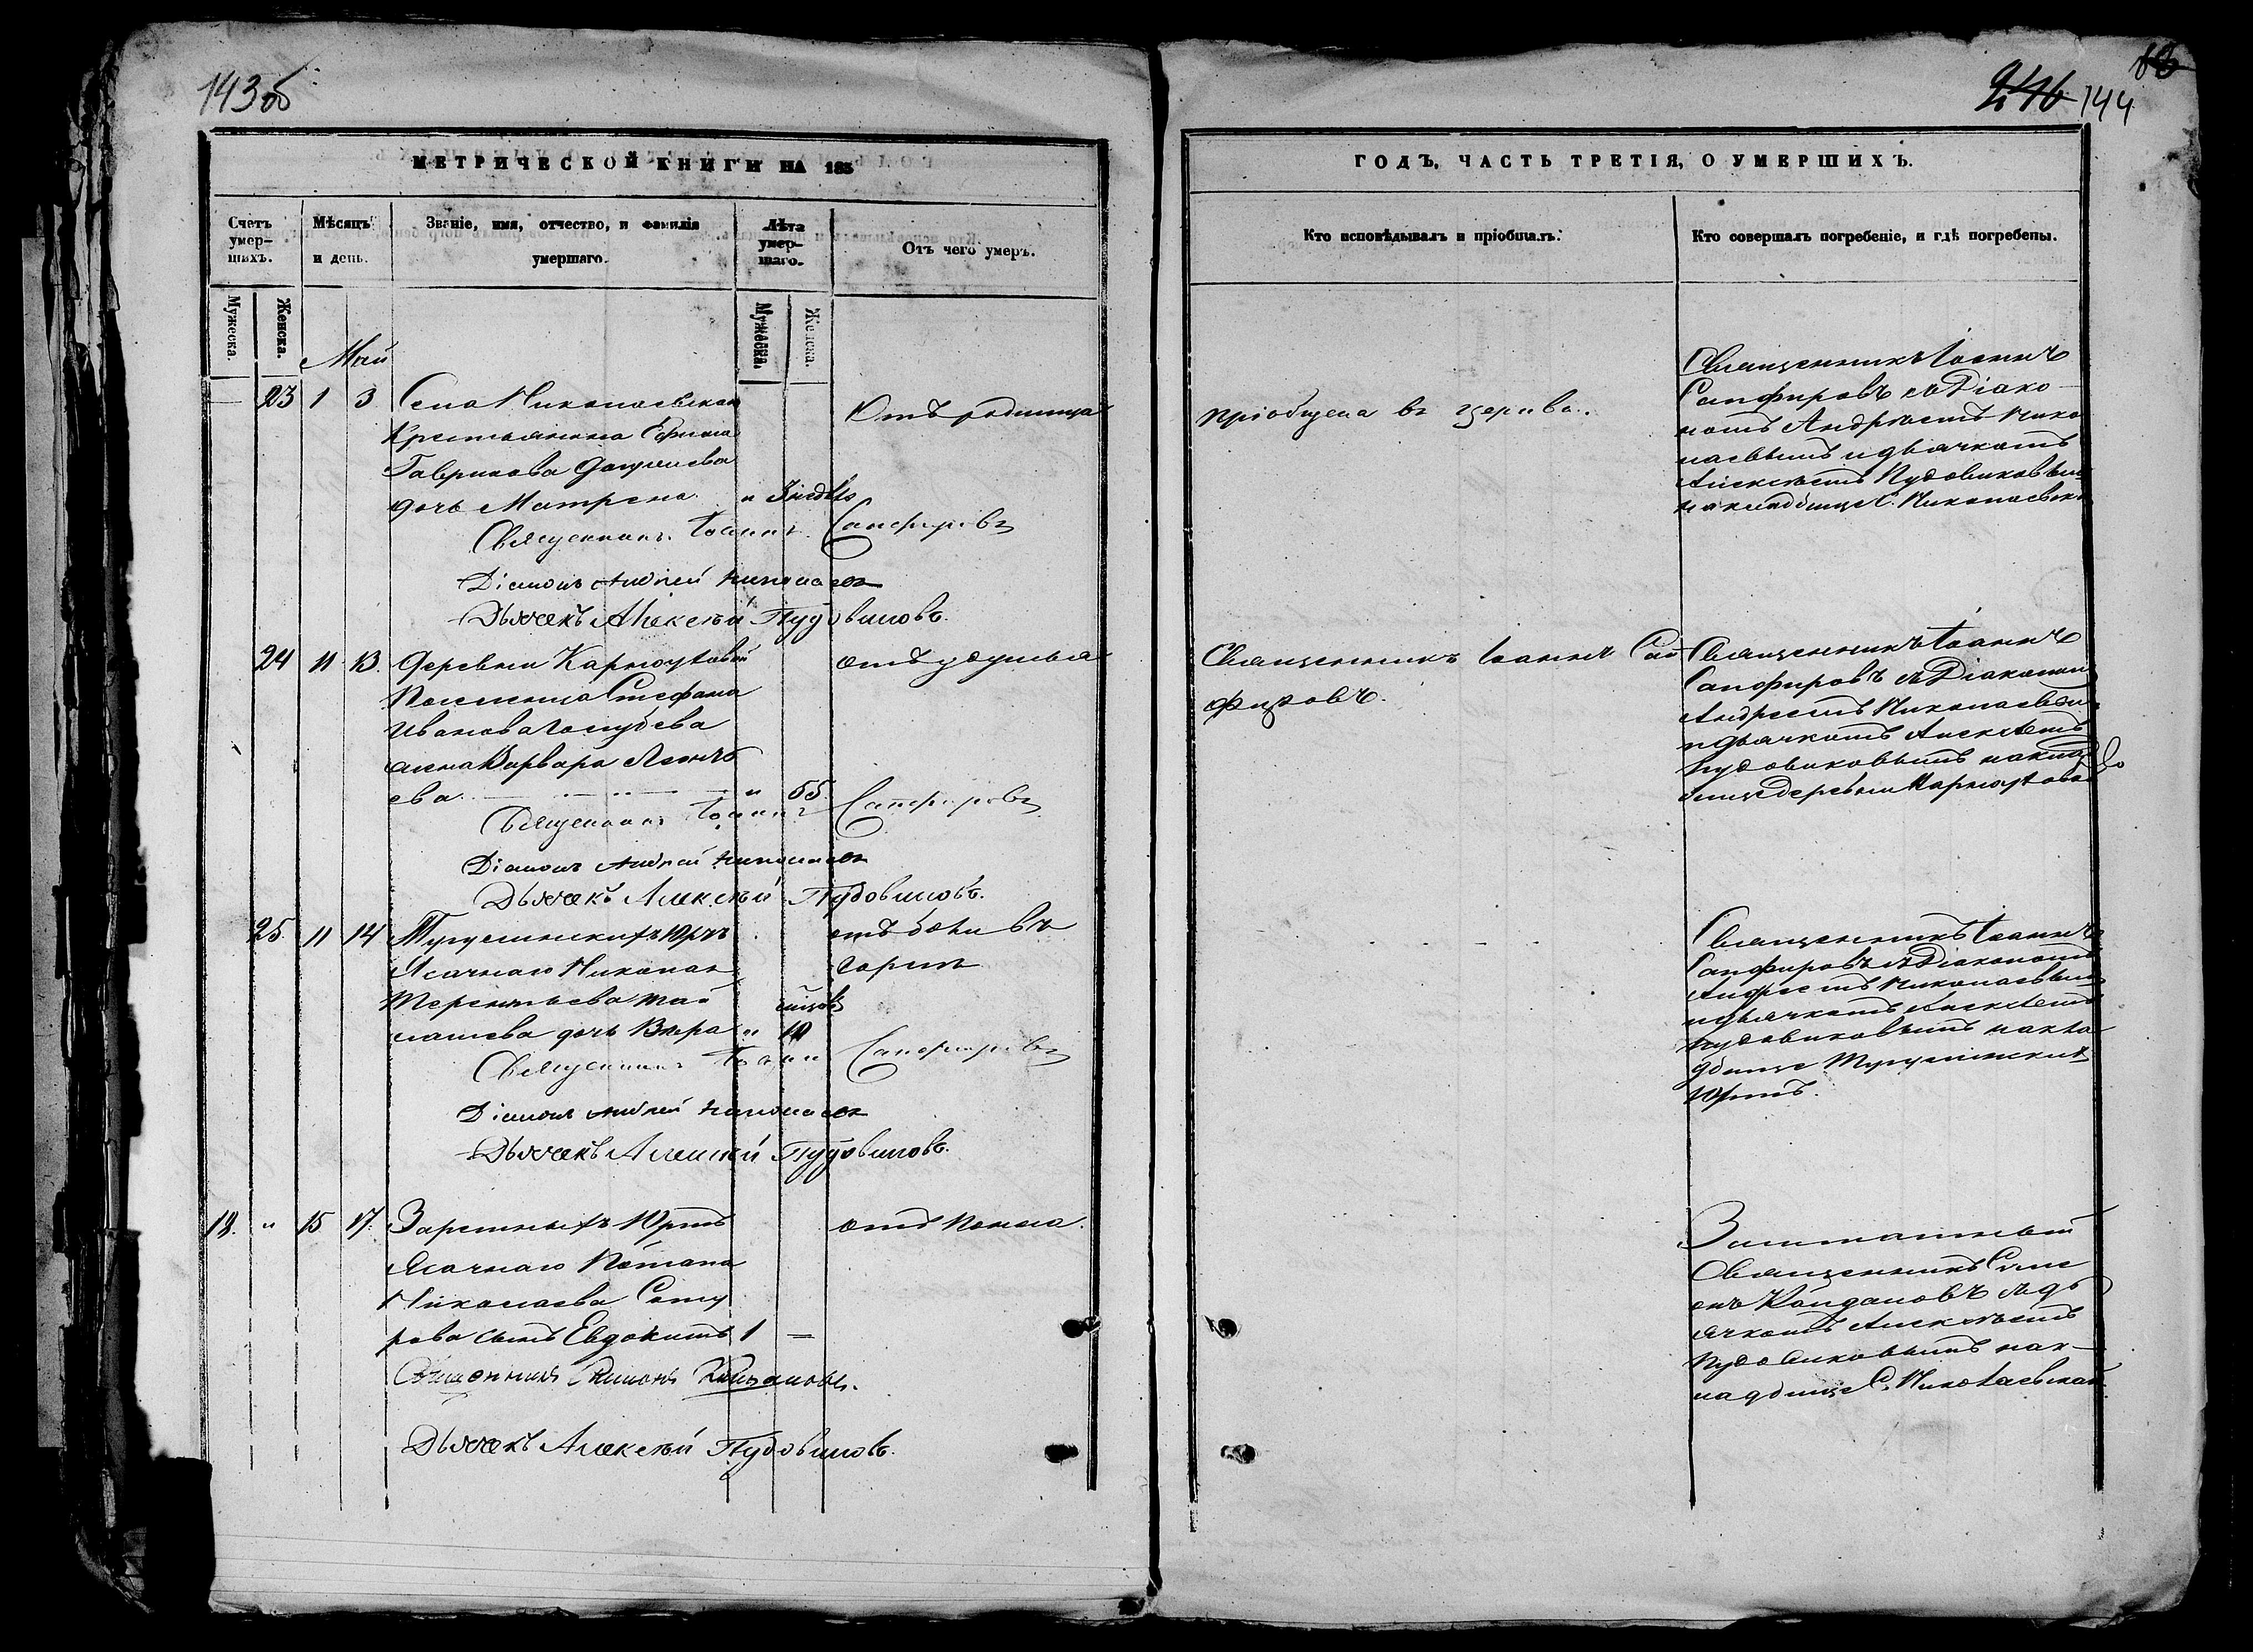 143 об
МЕТРИЧЕСКОЙ КНИГИ НА 185
Счетъ умер-шихъ.
Мѣсяцъ и день.
Званіе, имя, отчество, и фамилія умершаго.
Лѣта умер-шаго.
Отъ чего умеръ.
Мужеска.
Женска.
Мужеска.
Женска.
Май
23 1 3 Села Николаевскаго Отъ родимца
Крестьянина Ефима
Гаврилова
дочь Матрена "
Священникъ Іоаннъ Сапфировъ
Діаконъ Андрей Николаевъ
Дьячекъ Алексѣй Пудовиковъ.
24 11 13. Деревни отъ удушья
Поселенца Стефана
Иванова Голубева
жена Варвара
ева " 55
Священникъ Іоаннъ Сапфировъ
Діаконъ Андрей Николаевъ
Дьячекъ Алексѣй Пудовиковъ.
25. 11 14 юртъ отъ боли въ
Ясачнаго Николая горлѣ
Терентьева
дочь Вѣра " 10
Священникъ Іоаннъ Сапфировъ
Діаконъ Андрей Николаевъ
Дьячекъ Алексѣй Пудовиковъ.
18. " 15 17. Зарѣчныхъ Юртъ отъ поноса.
Ясачнаго Потапа
Николаева
рова сынъ Евдокимъ 1 —
Священникъ Симеонъ
Дьячекъ Алексѣй Пудовиковъ.
246 144
ГОДЪ, ЧАСТЬ ТРЕТІЯ, О УМЕРШИХЪ.
Кто исповѣдывалъ и пріобщалъ.
Кто совершалъ погребеніе, и гдѣ погребены.
пріобщена въ церкви.
Священникъ Іоаннъ
Сапфировъ съ Діако-
номъ Андреемъ Нико
лаевымъ и дьячкомъ
Алексѣемъ Пудовиковымъ
на кладбище С. Николаевска
Священникъ Іоаннъ Сап
фировъ.
Священникъ Іоаннъ
Сапфировъ съ Діакономъ
Андреемъ Николаевым
и дьячкомъ Алексѣемъ
Пудовиковымъ на клад
бище деревни
Священникъ Іоаннъ
Сапфировъ съ Діакономъ
Андреемъ Николаевым
и дьячкомъ Алексѣемъ
Пудовиковымъ на кла
дбище
Юртъ.
Заштатный
Священникъ Симе
онъ съ дь
ячкомъ Алексѣемъ
Пудовиковымъ на к-
ладбище С. Николаевскаго